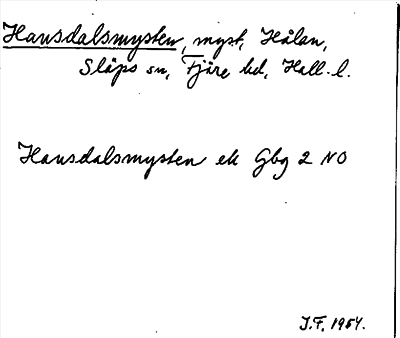 Hansdalsmysten, myst, Hålan,
Släps sn, Fjäre hd, Hall. l.
Hansdalsmysten ek Gbg 2 NO
J.F. 1954.